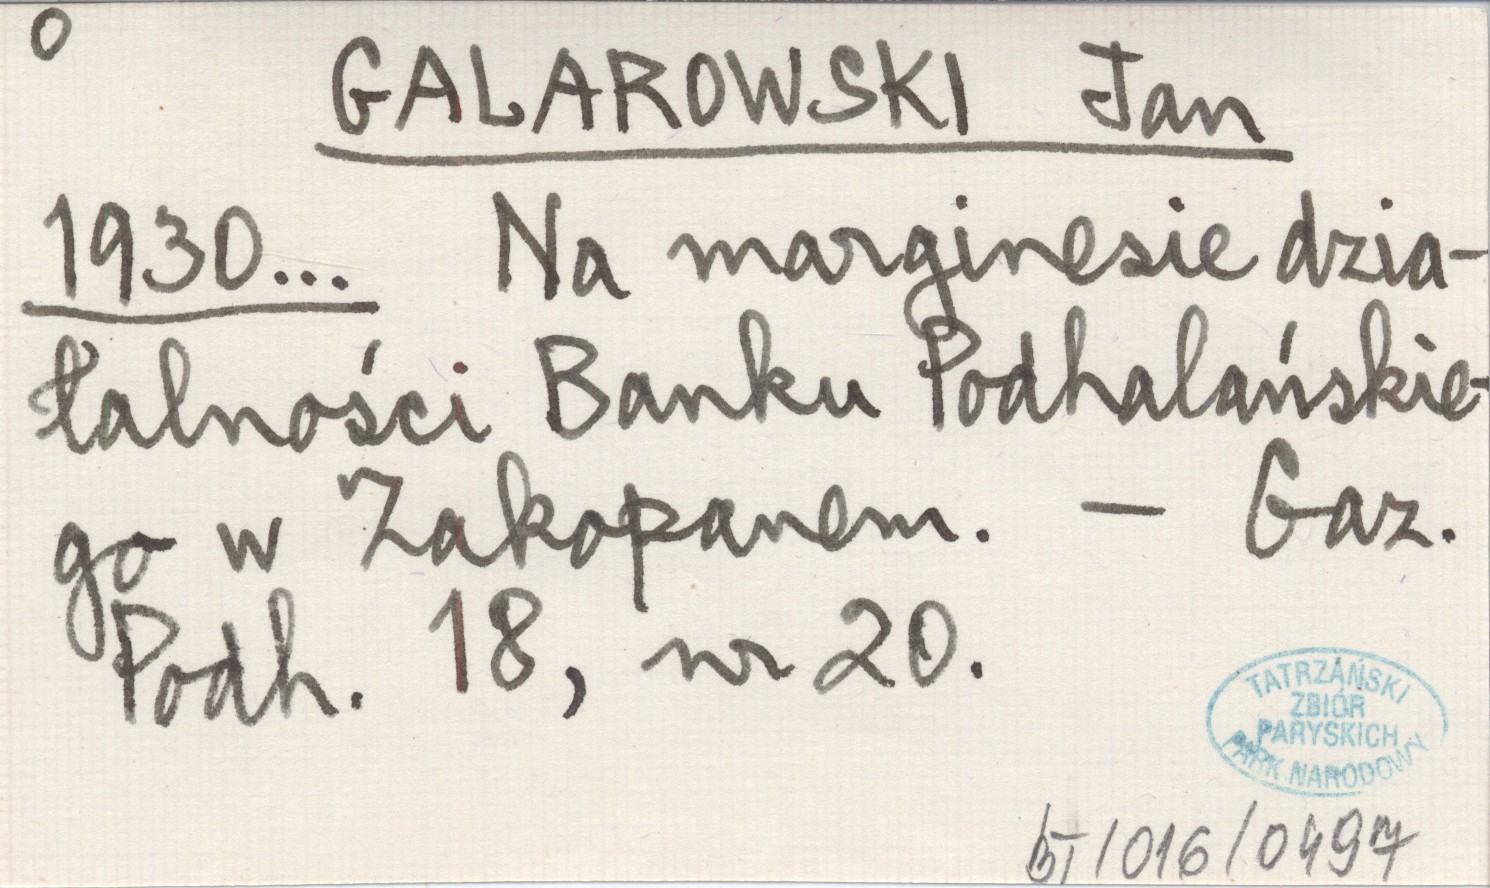 O
GALAROWSKI Jan
1930... Na marginesie dzia-
łalności Banku Podhalańskie-
go w Zakopanem. — Gaz.
Podh. 18, nr 20.
TATRZAŃSKI
ZBIÓR
PARYSKICH
PARK NARODOWY
/016/0497